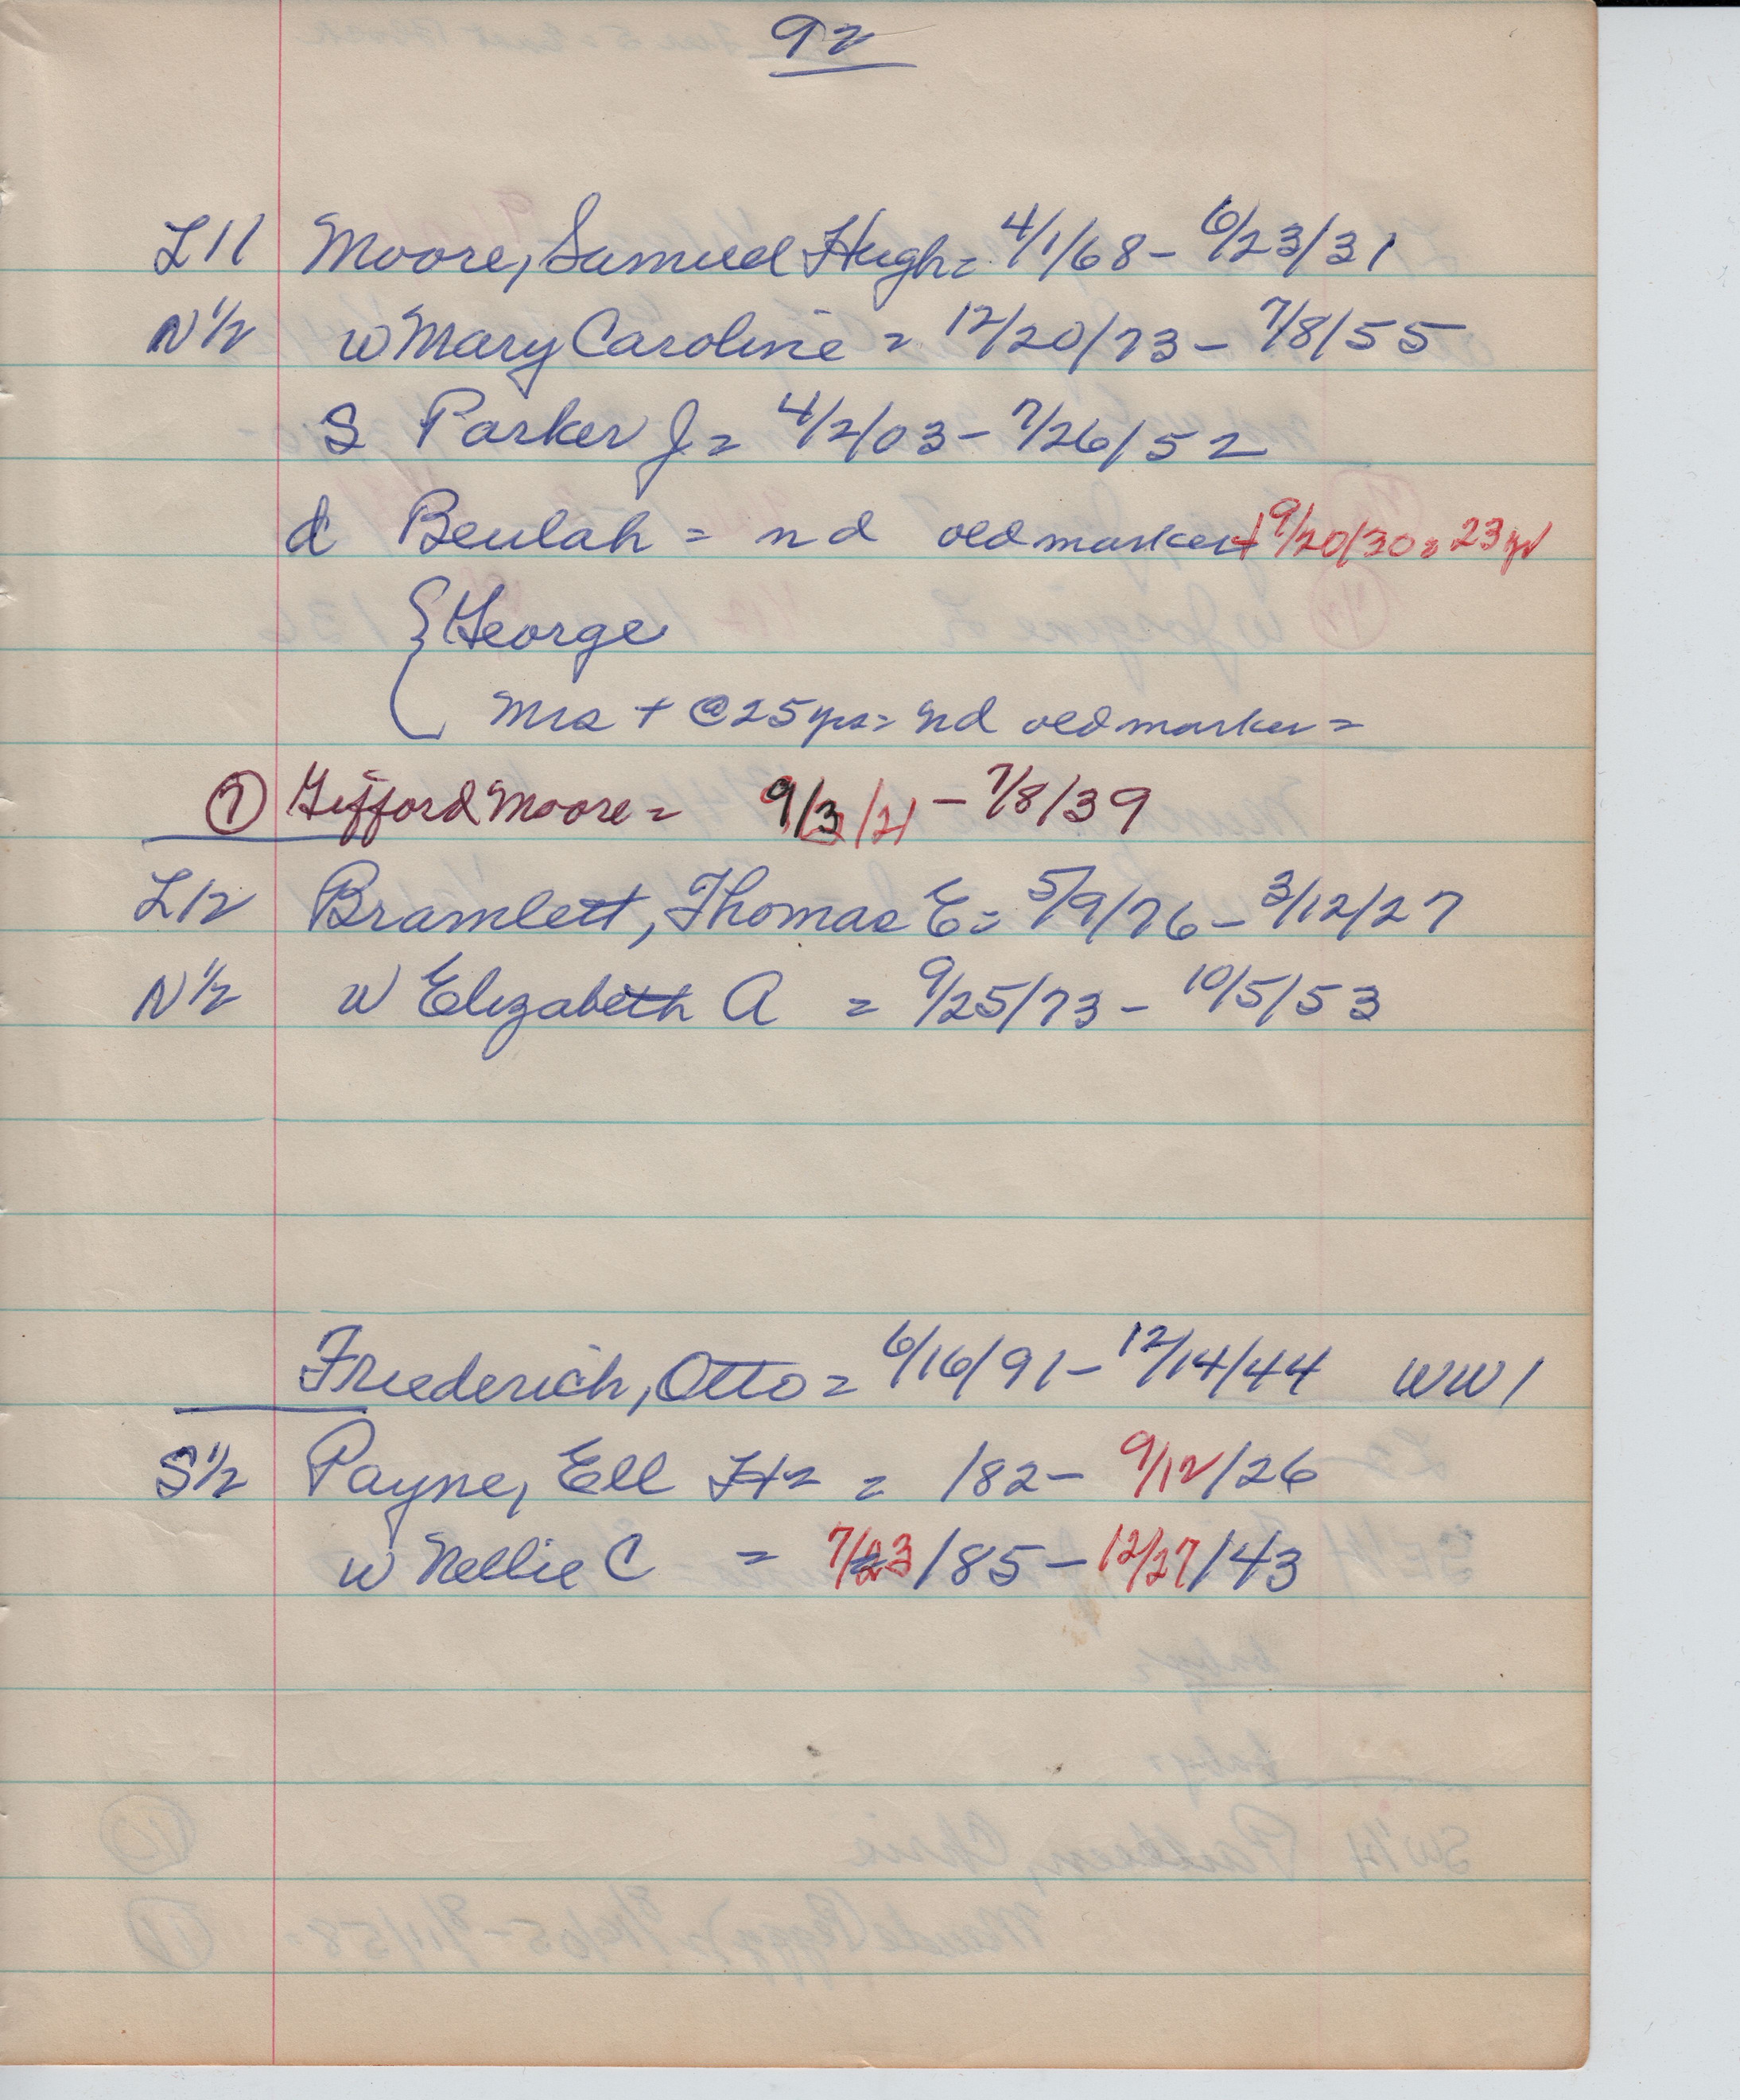 92
L11 Moore, Samuel Hugh = 4/1/68 - 6/23/31
N 1/2 w Mary Caroline = 12/20/73 - 7/8/55
S Parker J = 4/2/03 - 7/26/52
d Beulah = n d old marker + 9/20/30 = 23 yr
{ George
Mrs + @ 25 yrs = nd old marker =
Gifford Moore = 9/3/21 - 7/8/39
L12 Bramlett, Thomas E = 5/9/76 - 3/12/27
N 1/2 w Elizabeth A = 9/25/73 - 10/5/53
Friederich, Otto = 6/16/91 - 12/14/44 WW1
S 1/2 Payne, Ell H = = 182 - 9/12/26
w Nellie C = 7/23/85 - 12/27/43